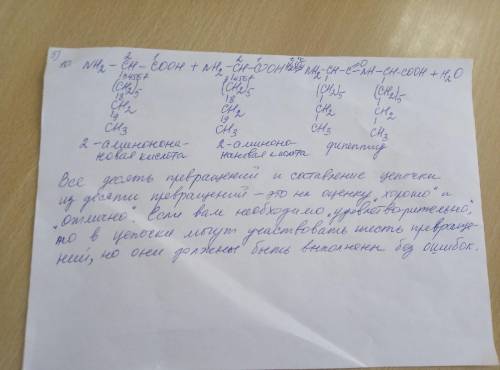 10. NH₂ – CH – COOH + NH₂ – CH – COOH NH₂–CH–C=O–NH–CH–COOH + H₂O
(CH₂)₅ (CH₂)₅ (CH₂)₅ (CH₂)₅
CH₂ CH₂ CH₂ CH₂
CH₃ CH₃ CH₃ CH₃
2 – аминонона- 2 – аминоно- дипептид
новая кислота нановая кислота
Все десять превращений и составление цепочки
из десяти превращений – это на оценку „хорошо“ и
„отлично“. Если вам необходимо „удовлетворительно“,
то в цепочки могут участвовать шесть превраще-
ний, но они должны быть выполнены без ошибок.